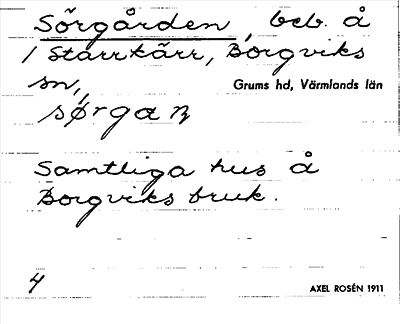 Sörgården, beb. å
1 Starrkärr, Borgviks
sn,
Grums hd, Värmlands län
sørgaɳ
Samtliga hus å
Borgviks bruk.
4
AXEL ROSÉN 1911